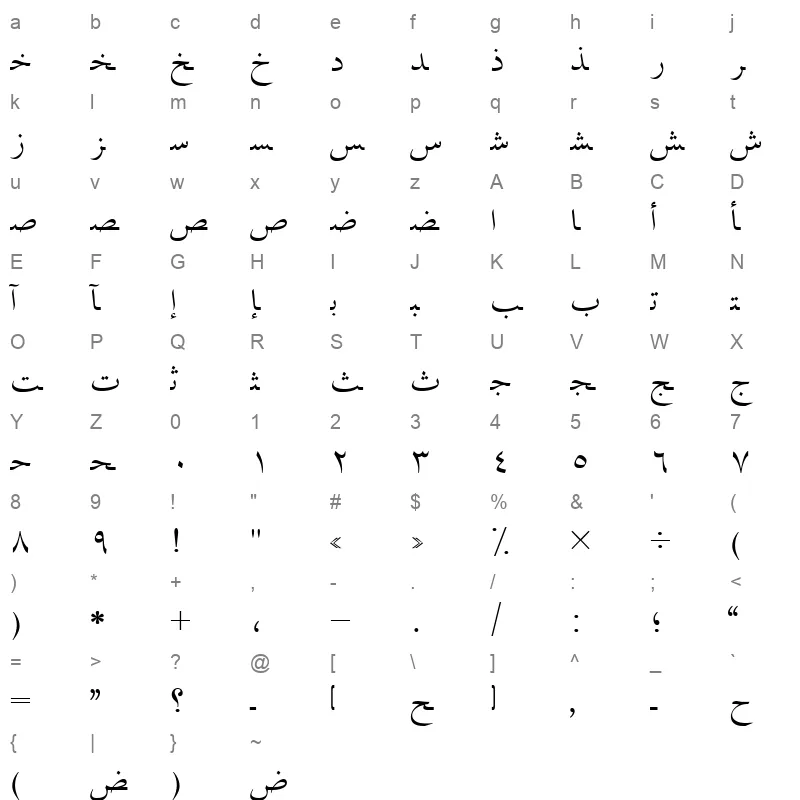 a b c d e f g h i j
خـ ـخـ ـخ خ د ـد ذ ـذ ر ـر
k l m n o p q r s t
ز ـز سـ ـسـ ـس س شـ ـشـ ـش ش
u v w x y z A B C D
صـ ـصـ ـص ص ضـ ـضـ ا ـا أ ـأ
E F G H I J K L M N
آ ـآ إ ـإ بـ ـبـ ـب ب تـ ـتـ
O P Q R S T U V W X
ـت ت ثـ ـثـ ـث ث جـ ـجـ ـج ج
Y Z 0 1 2 3 4 5 6 7
حـ ـحـ ٠ ١ ٢ ٣ ٤ ٥ ٦ ٧
8 9 ! " # $ % & ' (
٨ ٩ ! " « » ٪ × ÷ (
) * + , - . / : ; <
) * + ، − . / : ؛ “
= > ? @ [ \ ] ^ _ `
= ” ؟ ـ [ ـح ] , ـ ح
{ | } ~
( ـض ) ض